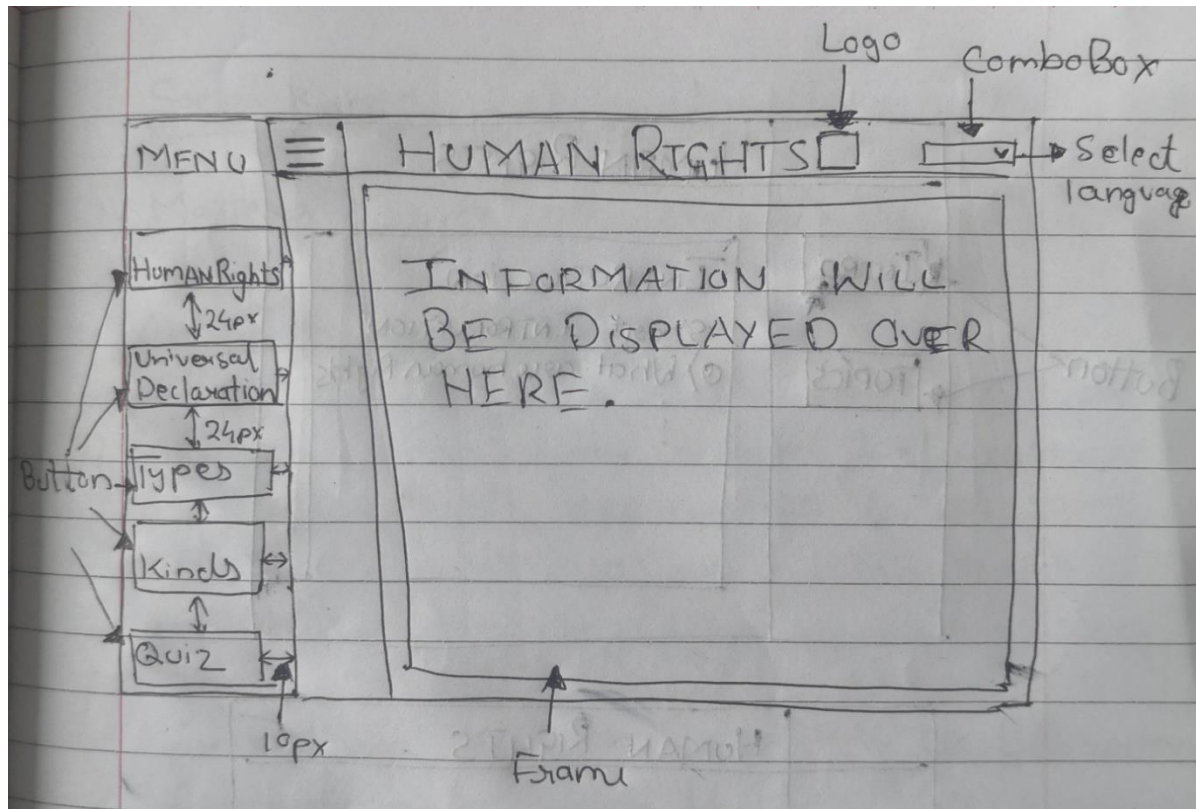 Logo
ComboBox
MENU
HUMAN RIGHTS
Select
language
Human Rights
24px
Universal
Declaration
24px
Button
Types
Kinds
Quiz
10px
INFORMATION WILL
BE DISPLAYED OVER
HERE.
Frame